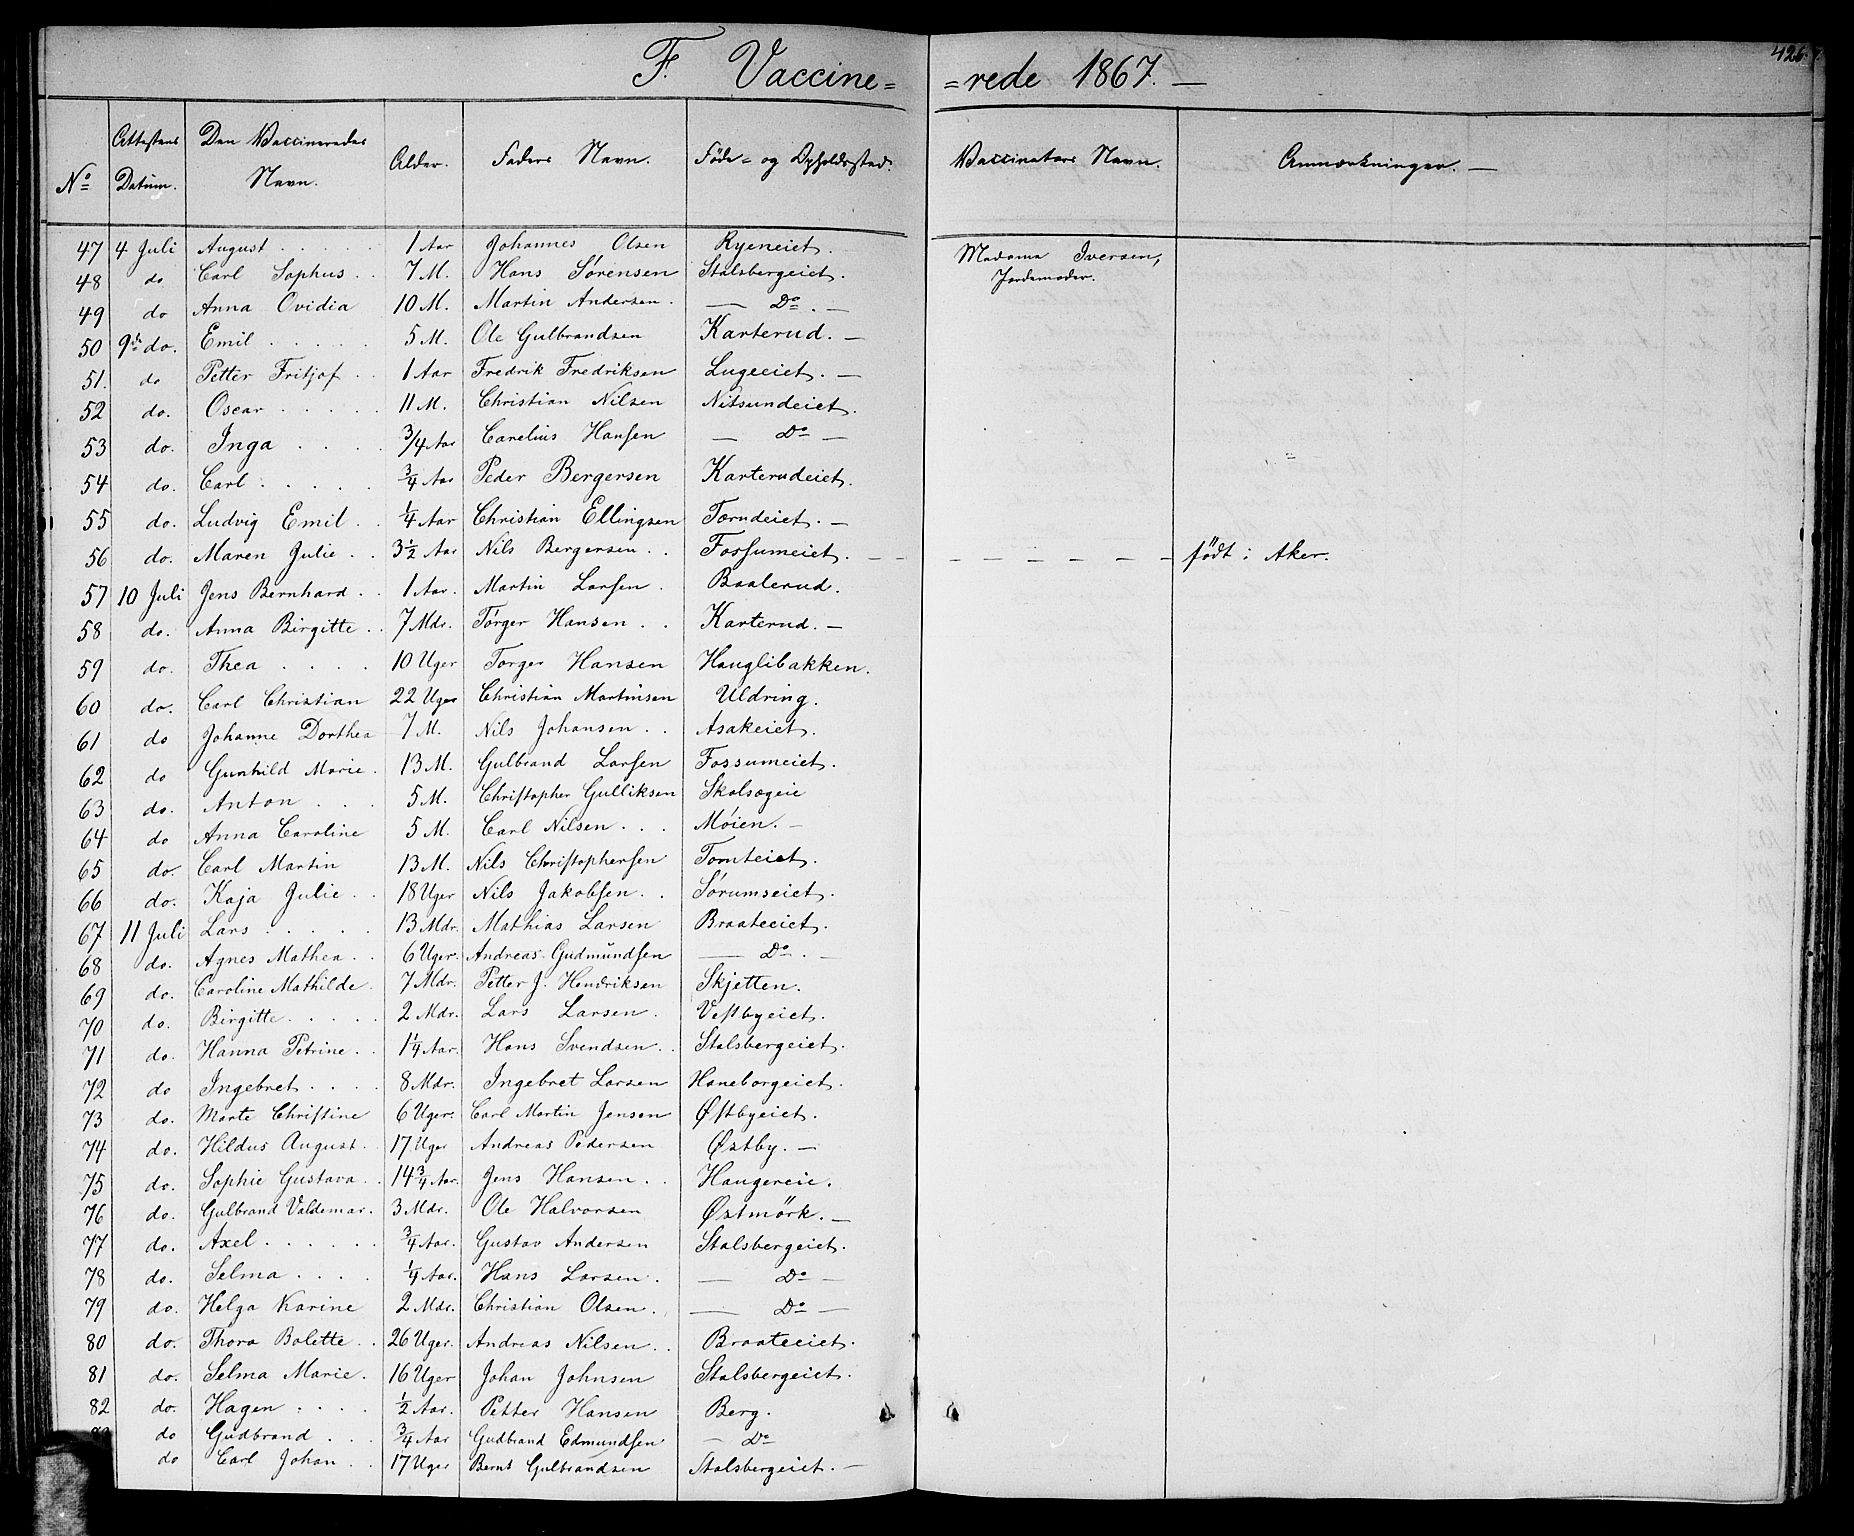 F. Vaccine= =rede 1867. —
426.
No | Attestens Datum. | Den Vaccineredes Navn. | Alder. | Faders Navn. | Føde= og Opholdssted. | Vaccinators Navn. | Anmærkninger. —
47 | 4 Juli | August . . . . . | 1 Aar | Johannes Olsen | Ryeneiet. | Madame Iversen, Jordemoder.
48 | do | Carl Sophus . . | 7 M. | Hans Sørensen | Stalsbergeiet.
49 | do | Anna Ovidia | 10 M. | Martin Andersen . | — Do. —
50 | 9de do. | Emil . . . . . | 5 M. | Ole Gulbrandsen | Karterud. —
51. | do | Petter Fritjof . . | 1 Aar | Fredrik Fredriksen | Lugeeiet. —
52 | do. | Oscar . . . . . | 11 M. | Christian Nilsen | Nitsundeiet.
53 | do. | Inga . . . . | 3/4 Aar | Carelius Hansen | — Do —
54 | do. | Carl . . . . . | 3/4 Aar | Peder Bergersen | Karterudeiet.
55 | do. | Ludvig Emil . . | 1/4 Aar | Christian Ellingsen | Torndeiet. —
56 | do. | Maren Julie . . | 3 1/2 Aar | Nils Bergersen . . | Fossumeiet. — | — — — — — | født i Aker.
57 | 10 Juli | Jens Bernhard . . | 1 Aar. | Martin Larsen . | Baalerud.
58 | do. | Anna Birgitte . . | 7 Mdr. | Tørger Hansen . . | Karterud. —
59 | do. | Thea . . . . | 10 Uger | Torger Hansen | Hauglibakken.
60 | do. | Carl Christian | 22 Uger | Christian Martinsen | Uldring.
61 | do | Johanne Dorthea | 7 M. | Nils Johansen . . | Asakeiet.
62 | do | Gunhild Marie . | 13 M. | Gulbrand Larsen | Fossumeiet.
63 | do. | Anton . . . | 5 M. | Christopher Gulliksen | Skolsægeie
64 | do | Anna Caroline | 5 M. | Carl Nilsen . . . | Møien. —
65 | do. | Carl Martin | 13 M. | Nils Christophersen | Tomteiet.
66 | do. | Kaja Julie . . | 18 Uger | Nils Jakobsen . . | Sørumseiet.
67 | 11 Juli | Lars . . . . . | 13 Mdr. | Mathias Larsen | Braateeiet.
68 | do. | Agnes Mathea . . | 6 Uger. | Andreas Gudmundsen | — Do. —
69 | do. | Caroline Mathilde . | 7 Mdr. | Petter J. Hendriksen | Skjetten.
70 | do. | Birgitte . . . . | 2 Mdr. | Lars Larsen . | Vestbyeiet.
71 | do. | Hanna Petrine . . | 1 1/4 Aar. | Hans Svendsen . . | Stalsbergeiet.
72 | do | Ingebret . . . . | 8 Mdr. | Ingebret Larsen | Haneborgeiet.
73 | do. | Marte Christine | 6 Uger. | Carl Martin Jensen | Østbyeiet.
74 | do. | Hildus August . | 17 Uger | Andreas Pedersen | Østby. —
75 | do. | Sophie Gustava . . | 14 3/4 Aar. | Jens Hansen . . | Haugereie.
76 | do. | Gulbrand Valdemar . | 3 Mdr. | Ole Halvorsen | Østmörk. —
77 | do. | Axel . . . . . . | 3/4 Aar. | Gustav Andersen | Stalsbergeiet.
78 | do. | Selma . . . . | 1/4 Aar. | Hans Larsen . | — Do —
79 | do. | Helga Karine | 2 Mdr. | Christian Olsen . | — Do —
80 | do. | Thora Bolette . . | 26 Uger. | Andreas Nilsen . . | Braateeiet.
81 | do. | Selma Marie . | 16 Uger | Johan Johnsen | Stalsbergeiet.
82 | do. | Hagen . . . . | 1/2 Aar. | Petter Hansen | Berg.
do | Gudbrand . . . | 3/4 Aar | Gudbrand Edmundsen | — Do
do | Carl Johan . . | 17 Uger | Bernt Gulbrandsen | Stalsbergeiet. —